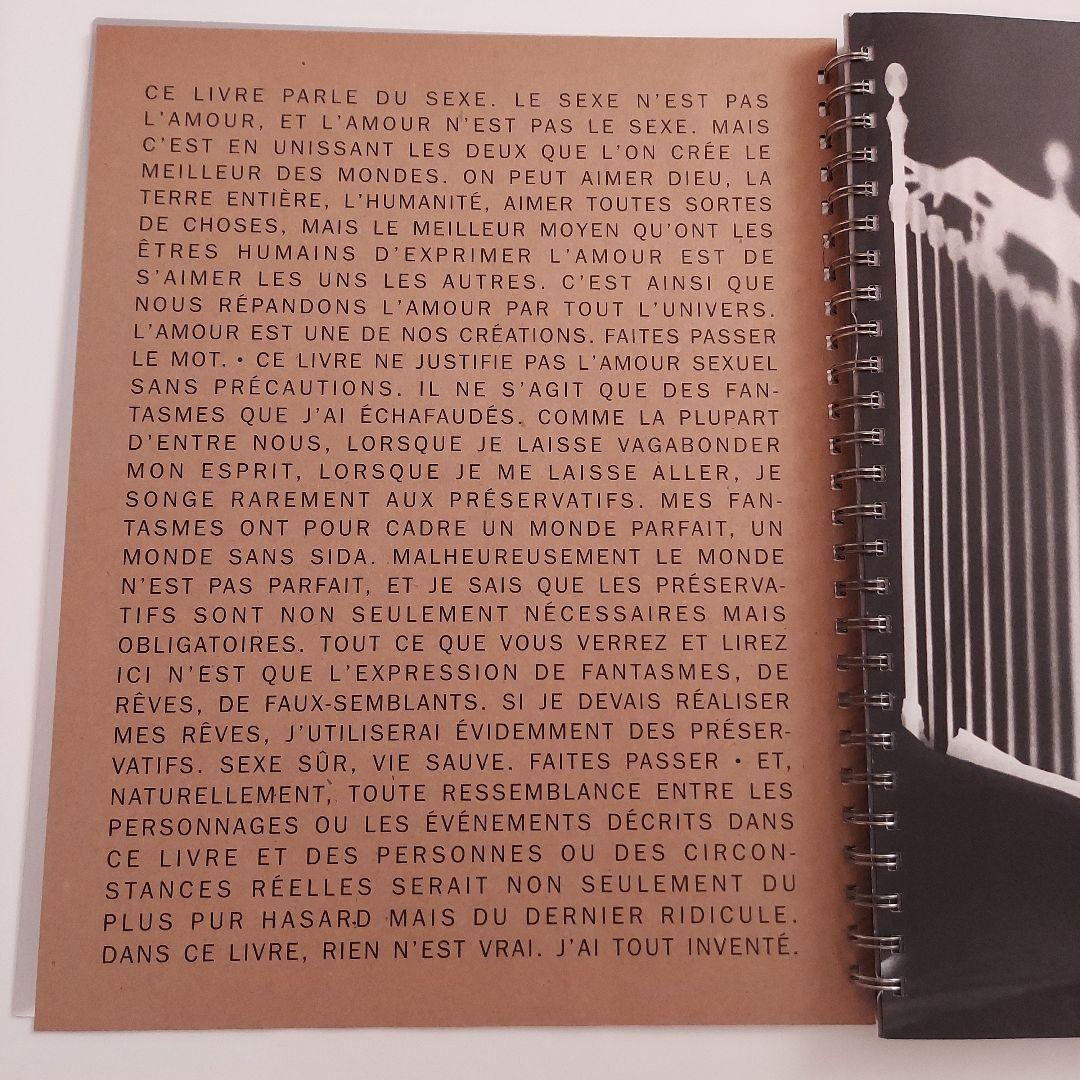 CE LIVRE PARLE DU SEXE. LE SEXE N'EST PAS
L'AMOUR, ET L'AMOUR N'EST PAS LE SEXE. MAIS
C'EST EN UNISSANT LES DEUX QUE L'ON CRÉE LE
MEILLEUR DES MONDES. ON PEUT AIMER DIEU, LA
TERRE ENTIÈRE, L'HUMANITÉ, AIMER TOUTES SORTES
DE CHOSES, MAIS LE MEILLEUR MOYEN QU'ONT LES
ÊTRES HUMAINS D'EXPRIMER L'AMOUR EST DE
S'AIMER LES UNS LES AUTRES. C'EST AINSI QUE
NOUS RÉPANDONS L'AMOUR PAR TOUT L'UNIVERS.
L'AMOUR EST UNE DE NOS CRÉATIONS. FAITES PASSER
LE MOT. • CE LIVRE NE JUSTIFIE PAS L'AMOUR SEXUEL
SANS PRÉCAUTIONS. IL NE S'AGIT QUE DES FAN-
TASMES QUE J'AI ÉCHAFAUDÉS. COMME LA PLUPART
D'ENTRE NOUS, LORSQUE JE LAISSE VAGABONDER
MON ESPRIT, LORSQUE JE ME LAISSE ALLER, JE
SONGE RAREMENT AUX PRÉSERVATIFS. MES FAN-
TASMES ONT POUR CADRE UN MONDE PARFAIT, UN
MONDE SANS SIDA. MALHEUREUSEMENT LE MONDE
N'EST PAS PARFAIT, ET JE SAIS QUE LES PRÉSERVA-
TIFS SONT NON SEULEMENT NÉCESSAIRES MAIS
OBLIGATOIRES. TOUT CE QUE VOUS VERREZ ET LIREZ
ICI N'EST QUE L'EXPRESSION DE FANTASMES, DE
RÊVES, DE FAUX-SEMBLANTS. SI JE DEVAIS RÉALISER
MES RÊVES, J'UTILISERAI ÉVIDEMMENT DES PRÉSER-
VATIFS. SEXE SÛR, VIE SAUVE. FAITES PASSER • ET,
NATURELLEMENT, TOUTE RESSEMBLANCE ENTRE LES
PERSONNAGES OU LES ÉVÉNEMENTS DÉCRITS DANS
CE LIVRE ET DES PERSONNES OU DES CIRCON-
STANCES RÉELLES SERAIT NON SEULEMENT DU
PLUS PUR HASARD MAIS DU DERNIER RIDICULE.
DANS CE LIVRE, RIEN N'EST VRAI. J'AI TOUT INVENTÉ.